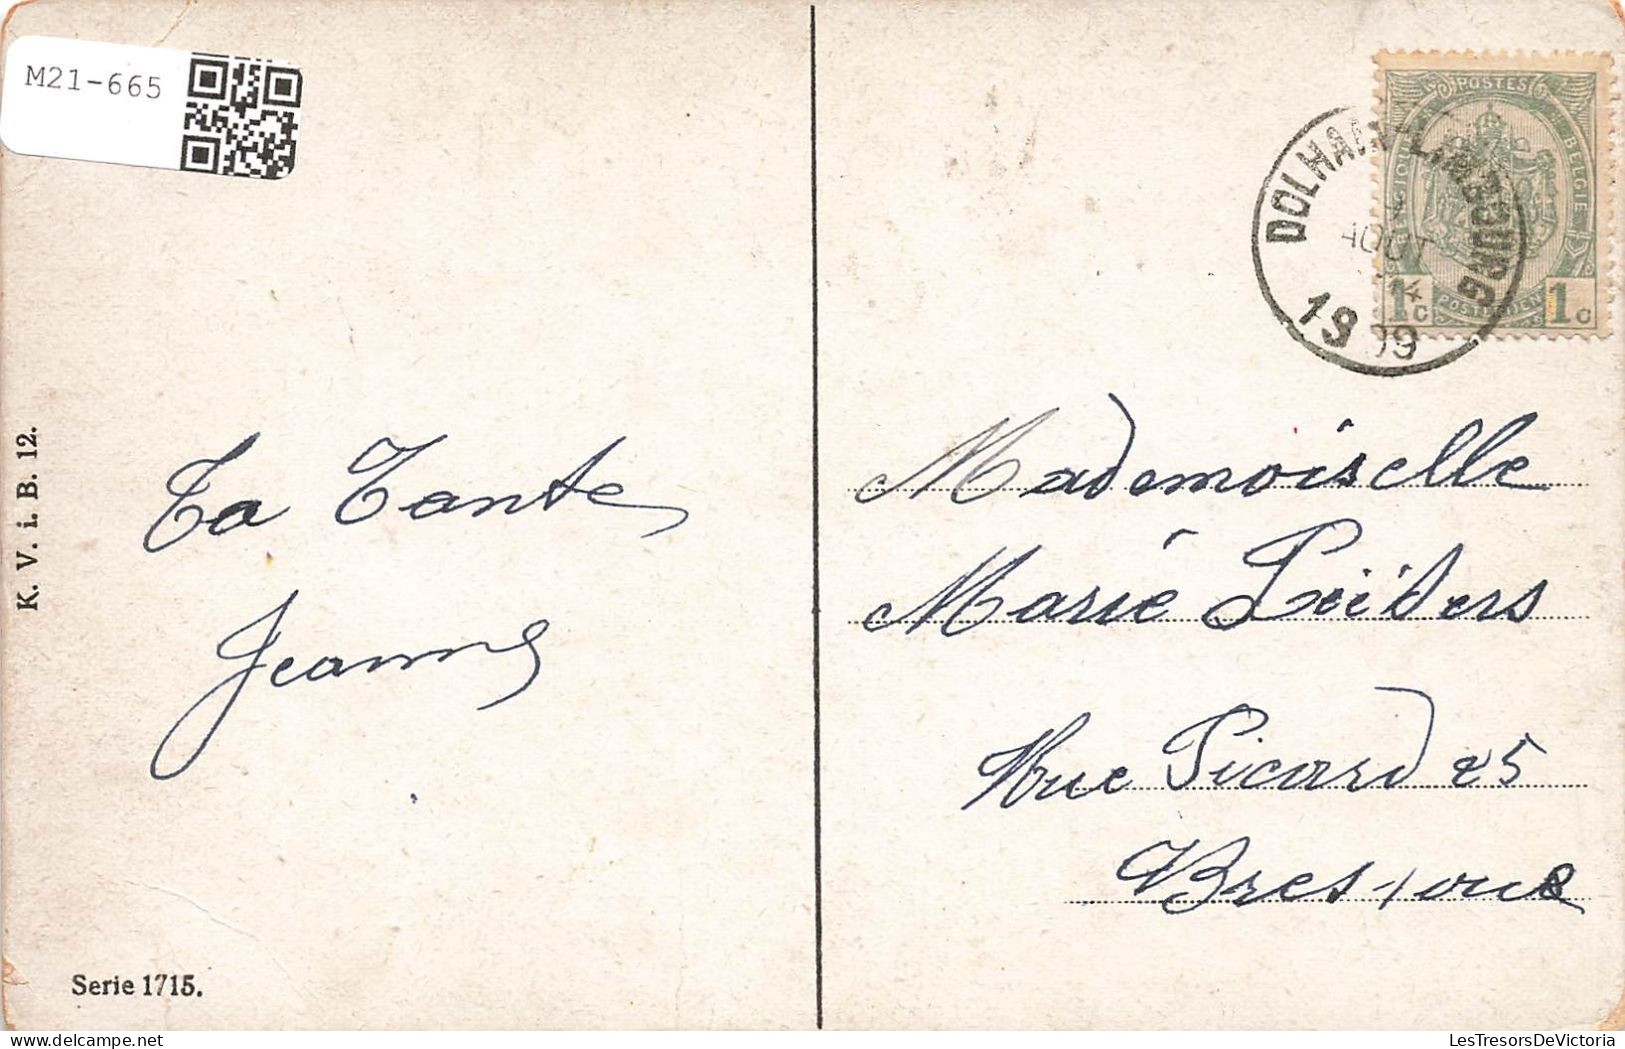 M21-665
POSTES BELGIQUE BELGIE
1c POSTERIJEN 1c
DOLHAIN-LIMBOURG
4
AOUT
14
1909
K. V. i. B. 12.
Ta Tante
Jeanne
Serie 1715.
Mademoiselle
Marie
Rue Picard 25
LesTresorsDeVictoria